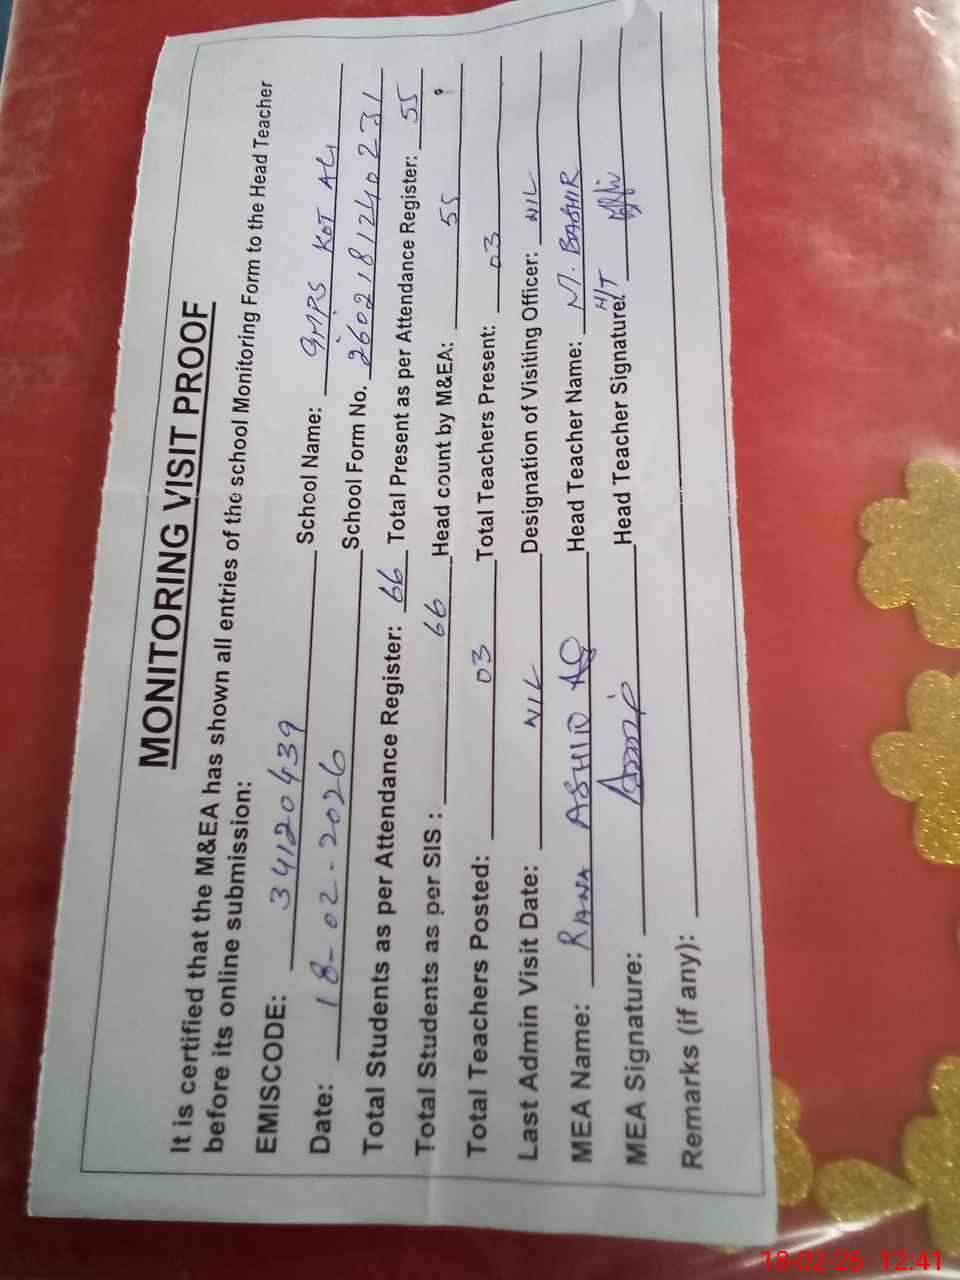 MONITORING VISIT PROOF
It is certified that the M&EA has shown all entries of the school Monitoring Form to the Head Teacher
before its online submission:
EMISCODE: 34120439 School Name: GMPS KOT ALI
Date: 18-02-2026 School Form No. 2602181240231
Total Students as per Attendance Register: 66 Total Present as per Attendance Register: 55
Total Students as per SIS : 66 Head count by M&EA: 55
Total Teachers Posted: 03 Total Teachers Present: 03
Last Admin Visit Date: NIL Designation of Visiting Officer: NIL
MEA Name: RANA ASHIQ Head Teacher Name: M. BASHIR
MEA Signature: Head Teacher Signature: H/T
Remarks (if any):
18-02-26 12:41